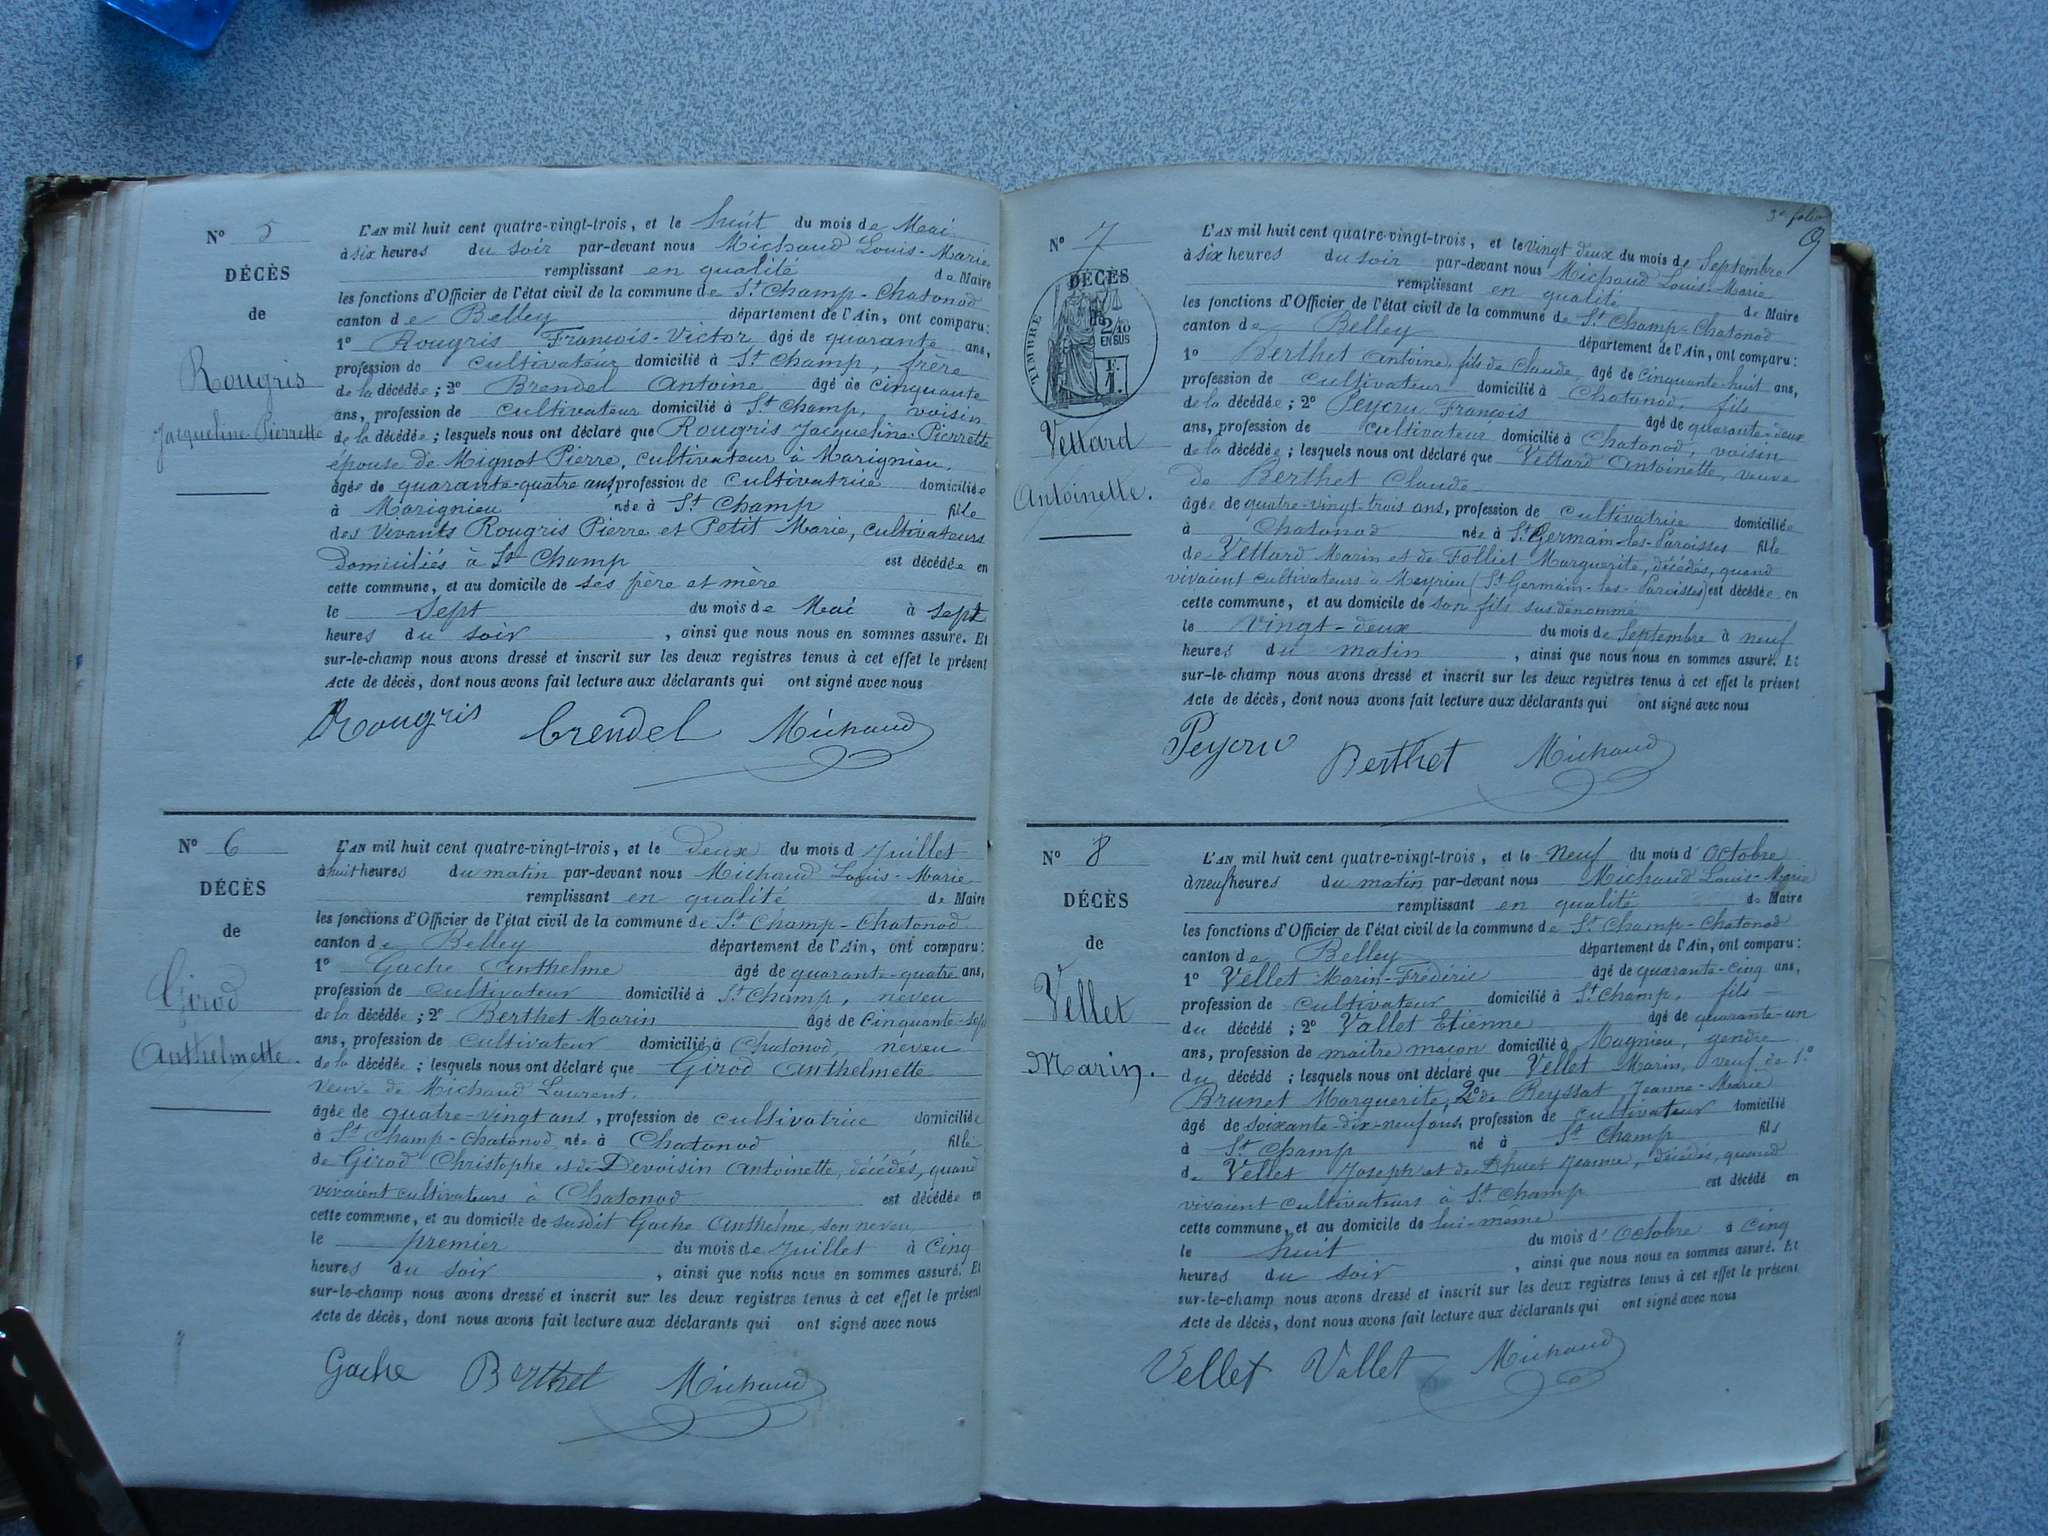 N° 5
DÉCÈS
de
Rougris
Jacqueline-Pierrette
L'AN mil huit cent quatre-vingt-trois, et le huit du mois de Mai
à six heures du soir par-devant nous Michaud Louis-Marie
remplissant en qualité de Maire
les fonctions d'Officier de l'état civil de la commune de St Champ-Chatonod
canton de Belley département de l'Ain, ont comparu:
1° Rougris François-Victor âgé de quarante ans,
profession de cultivateur domicilié à St Champ, frère
de la décédée; 2° Brendel Antoine âgé de cinquante
ans, profession de cultivateur domicilié à St Champ, voisin
de la décédée; lesquels nous ont déclaré que Rougris Jacqueline-Pierrette
épouse de Mignot Pierre, cultivateur à Marignieu,
âgée de quarante-quatre ans, profession de cultivatrice domiciliée
à Marignieu née à St Champ fille
des vivants Rougris Pierre et Petit Marie, cultivateurs
domiciliés à St Champ est décédée en
cette commune, et au domicile de ses père et mère
le sept du mois de Mai à sept
heures du soir, ainsi que nous nous en sommes assuré. Et
sur-le-champ nous avons dressé et inscrit sur les deux registres tenus à cet effet le présent
Acte de décès, dont nous avons fait lecture aux déclarants qui ont signé avec nous
Rougris Brendel Michaud
N° 6
DÉCÈS
de
Girod
Anthelmette.
L'AN mil huit cent quatre-vingt-trois, et le deux du mois d Juillet
à huit heures du matin par-devant nous Michaud Louis-Marie
remplissant en qualité de Maire
les fonctions d'Officier de l'état civil de la commune de St Champ-Chatonod
canton de Belley département de l'Ain, ont comparu:
1° Gache Anthelme âgé de quarante-quatre ans,
profession de cultivateur domicilié à St Champ, neveu
de la décédée; 2° Berthet Marin âgé de cinquante-sept
ans, profession de cultivateur domicilié à Chatonod, neveu
de la décédée; lesquels nous ont déclaré que Girod Anthelmette
veuve de Michaud Laurent,
âgée de quatre-vingt ans, profession de cultivatrice domiciliée
à St Champ-Chatonod née à Chatonod fille
de Girod Christophe et de Devoisin Antoinette, décédés, quand
vivaient cultivateurs à Chatonod est décédée en
cette commune, et au domicile de susdit Gache Anthelme, son neveu
le premier du mois de Juillet à cinq
heures du soir, ainsi que nous nous en sommes assuré. Et
sur-le-champ nous avons dressé et inscrit sur les deux registres tenus à cet effet le présent
Acte de décès, dont nous avons fait lecture aux déclarants qui ont signé avec nous
Gache Berthet Michaud
3e folio
9
N° 7
DÉCÈS
de
TIMBRE
2/10
EN SUS
Vettard
Antoinette.
L'AN mil huit cent quatre-vingt-trois, et le vingt deux du mois de Septembre
à six heures du soir par-devant nous Michaud Louis-Marie
remplissant en qualité de Maire
les fonctions d'Officier de l'état civil de la commune de St Champ-Chatonod
canton de Belley département de l'Ain, ont comparu:
1° Berthet Antoine, fils de Claude, âgé de cinquante-huit ans,
profession de cultivateur domicilié à Chatonod, fils
de la décédée; 2° Peycru François âgé de quarante-deux
ans, profession de cultivateur domicilié à Chatonod, voisin
de la décédée; lesquels nous ont déclaré que Vettard Antoinette, veuve
de Berthet Claude
âgée de quatre-vingt-trois ans, profession de cultivatrice domiciliée
à Chatonod née à St Germain-les-Paroisses fille
de Vettard Marin et de Folliet Marguerite, décédés, quand
vivaient cultivateurs à Meyrieu (St Germain-les-Paroisses) est décédée en
cette commune, et au domicile de son fils susdénommé
le vingt-deux du mois de Septembre à neuf
heures du matin, ainsi que nous nous en sommes assuré. Et
sur-le-champ nous avons dressé et inscrit sur les deux registres tenus à cet effet le présent
Acte de décès, dont nous avons fait lecture aux déclarants qui ont signé avec nous
Peycru Berthet Michaud
N° 8
DÉCÈS
de
Vellet
Marin.
L'AN mil huit cent quatre-vingt-trois, et le neuf du mois d'Octobre
à neuf heures du matin par-devant nous Michaud Louis-Marie
remplissant en qualité de Maire
les fonctions d'Officier de l'état civil de la commune de St Champ-Chatonod
canton de Belley département de l'Ain, ont comparu:
1° Vellet Marin-Frédéric âgé de quarante-cinq ans,
profession de cultivateur domicilié à St Champ, fils
du décédé; 2° Vallet Etienne âgé de quarante-un
ans, profession de maître maçon domicilié à Magnieu, gendre
du décédé; lesquels nous ont déclaré que Vellet Marin, veuf de 1°
Brunet Marguerite, 2° de Reyssat Jeanne-Marie
âgé de soixante-dix-neuf ans, profession de cultivateur domicilié
à St Champ né à St Champ fils
de Vellet Joseph et de Jeanne, décédés, quand
vivaient cultivateurs à St Champ est décédé en
cette commune, et au domicile de lui-même
le huit du mois d'Octobre à cinq
heures du soir, ainsi que nous nous en sommes assuré. Et
sur-le-champ nous avons dressé et inscrit sur les deux registres tenus à cet effet le présent
Acte de décès, dont nous avons fait lecture aux déclarants qui ont signé avec nous
Vellet Vallet Michaud